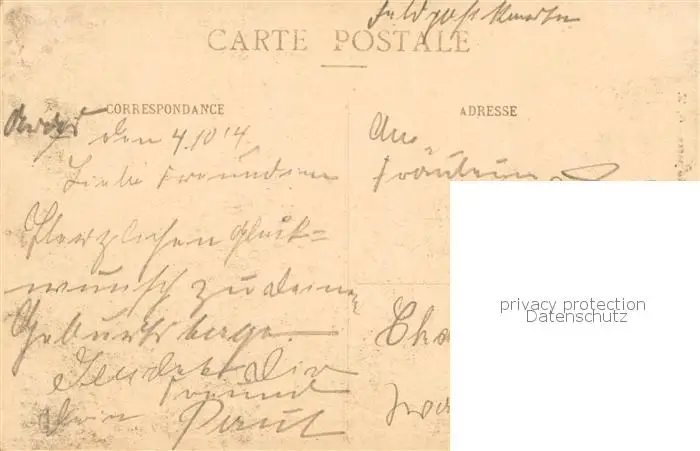 Feldpostkarte
CARTE POSTALE
CORRESPONDANCE
ADRESSE
den 4.10 14
Liebe Freundin
Herzlichen Glück-
wunsch zu deinem
Geburtstage.
Sendet dir
Freund
dein Paul
An
Fräulein
privacy protection
Datenschutz